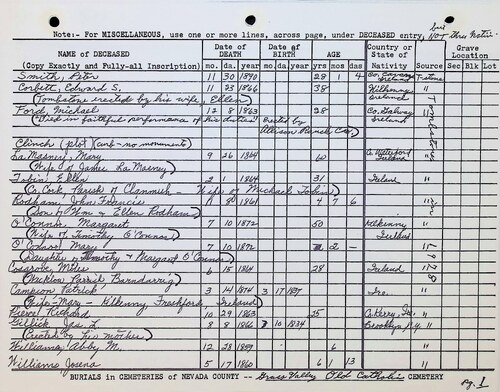 but
Note:- For MISCELLANEOUS, use one or more lines, across page, under DECEASED entry, NOT thru Nativ.
NAME OF DECEASED (Copy Exactly and Fully-all Inscription) Date of DEATH mo. da. year Date of BIRTH mo. da. year AGE yrs mos das Country or State of Nativity Source Grave Location Sec Blk Lot
Smith, Peter 11 30 1890 28 1 4 Co. Cavan Ireland
Corbett, Edward S. 11 23 1866 38 Kilkenny Ireland "
(Tombstone erected by his wife, Ellen) Tombstone
Ford, Michael 12 8 1863 28 Co. Galway Ireland
("Died in faithful performance of his duties" Erected by Allison Ranch Co.)
Clinch (plot) (unf - no monuments)
La Masney, Mary 9 26 1864 Co. Waterford Ireland "
(Wife of James La Masney)
Tobin, Ellen 2 1 1864 31 Ireland "
(Co. Cork, Parish of Clonmich - Wife of Michael Tobin)
Rodham, John Francis 1861 4 7 6
(Son of Wm & Ellen Rodham)
O'Connor, Margaret 7 10 1872 50 Kilkenny Ireland "
(Wife of Timothy O'Connor)
O'Connor, Mary 7 10 1872 2 -
(Daughter of Timothy & Margaret O'Connor)
Cosgrove, Miles 6 15 1864 28 Ireland
(Wicklow Parish Barndarrig)
Campion Patrick 3 14 1874 3 17 Ire. "
(Wife-Mary - Kilkenny, Freshford, Ireland)
Pierce, Richard 10 29 1863 25 Ire. "
Gillick, Jas. L. 8 8 1866 10 1834 Brooklyn N.Y. "
(Erected by his mother)
Williams, Abby M. 12 28 1859 6 "
Williams, Josena 5 17 1860 6 13 "
BURIALS in CEMETERIES of NEVADA COUNTY -- Grass Valley Old Catholic CEMETERY
pg. 1